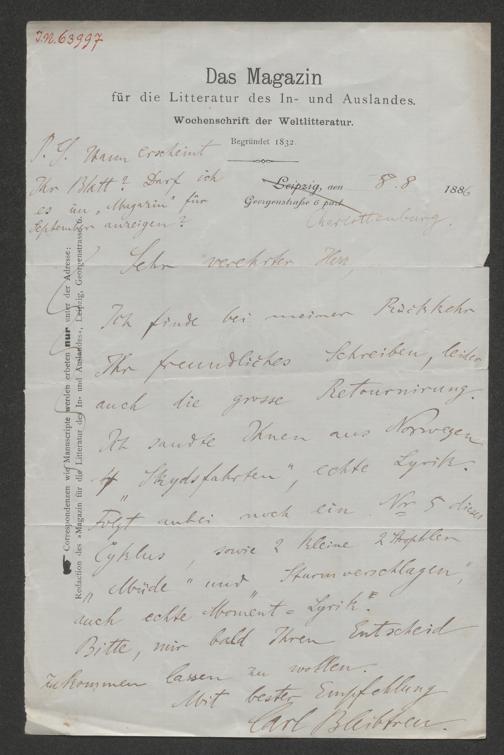 I.N. 63997
Das Magazin
für die Litteratur des In- und Auslandes.
Wochenschrift der Weltlitteratur.
Begründet 1832.
P. S. Wann erscheint
Ihr Blatt? Darf ich
es im „Magazin" für
September anzeigen?
Leipzig, den 8. 8 1886
Georgenstraße 6 part
Charlottenburg.
Correspondenzen wie Manuscripte werden erbeten nur unter der Adresse:
Redaction des »Magazin für die Litteratur des In- und Auslandes«, Leipzig, Georgenstrasse 6.
Sehr verehrter Herr,
Ich finde bei meiner Rückkehr
Ihr freundliches Schreiben, leider
auch die grosse Retournirung.
Ich sandte Ihnen aus Norwegen
4 „Skydsfahrten", echte Lyrik.
Folgt anbei noch ein Nr 5 dieses
Cyklus, sowie 2 kleine
„Müde" und „Sturmverschlagen",
auch echte Moment-Lyrik.
Bitte, mir bald Ihren Entscheid
zukommen lassen zu wollen.
Mit bester Empfehlung
Carl Bleibtreu.